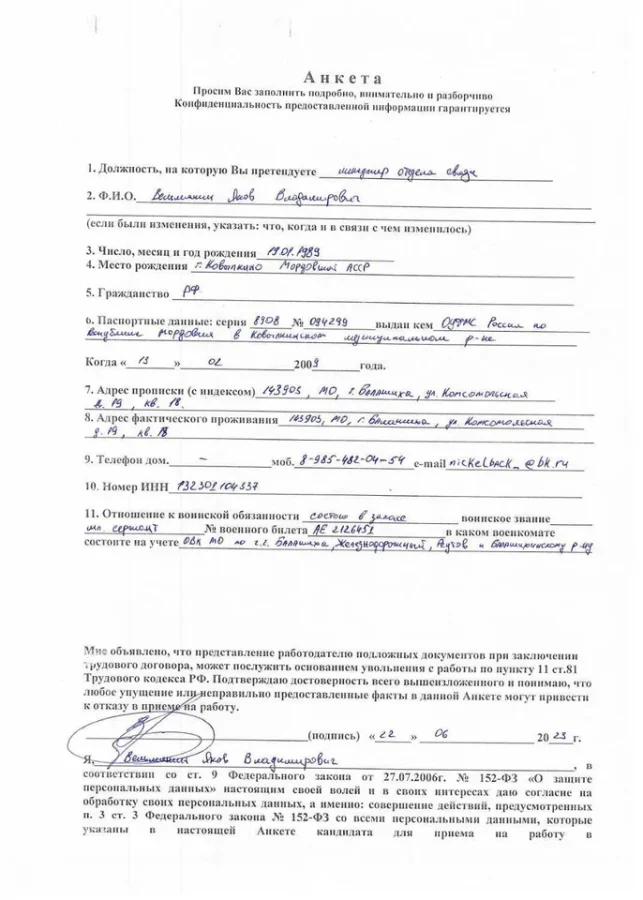 Анкета
Просим Вас заполнить подробно, внимательно и разборчиво
Конфиденциальность предоставленной информации гарантируется
1. Должность, на которую Вы претендуете менеджер отдела связи
2. Ф.И.О. Вельмянин Яков Владимирович
(если были изменения, указать: что, когда и в связи с чем изменилось)
3. Число, месяц и год рождения 19.01.1989
4. Место рождения г. Ковылкино Мордовской АССР
5. Гражданство РФ
6. Паспортные данные: серия 8908 № 094299 выдан кем ОУФМС России по
республике Мордовия в Ковылкинском муниципальном р-не
Когда «13» 02 2009 года.
7. Адрес прописки (с индексом) 143903, МО, г. Балашиха, ул. Комсомольская
д. 19, кв. 18.
8. Адрес фактического проживания 143903, МО, г. Балашиха, ул. Комсомольская
д. 19, кв. 18
9. Телефон дом. – моб. 8-985-482-04-54 e-mail nickelback_@bk.ru
10. Номер ИНН 132301104537
11. Отношение к воинской обязанности состою в запасе воинское звание
мл. сержант № военного билета АЕ 2126451 в каком военкомате
состоите на учете ОВК МО по г.г. Балашиха, Железнодорожный, Реутов и Балашихинскому р-ну
Мне объявлено, что представление работодателю подложных документов при заключении
трудового договора, может послужить основанием увольнения с работы по пункту 11 ст.81
Трудового кодекса РФ. Подтверждаю достоверность всего вышеизложенного и понимаю, что
любое упущение или неправильно предоставленные факты в данной Анкете могут привести
к отказу в приеме на работу.
(подпись) «22» 06 2023 г.
Я, Вельмянин Яков Владимирович, в
соответствии со ст. 9 Федерального закона от 27.07.2006г. № 152-ФЗ «О защите
персональных данных» настоящим своей волей и в своих интересах даю согласие на
обработку своих персональных данных, а именно: совершение действий, предусмотренных
п. 3 ст. 3 Федерального закона № 152-ФЗ со всеми персональными данными, которые
указаны в настоящей Анкете кандидата для приема на работу в